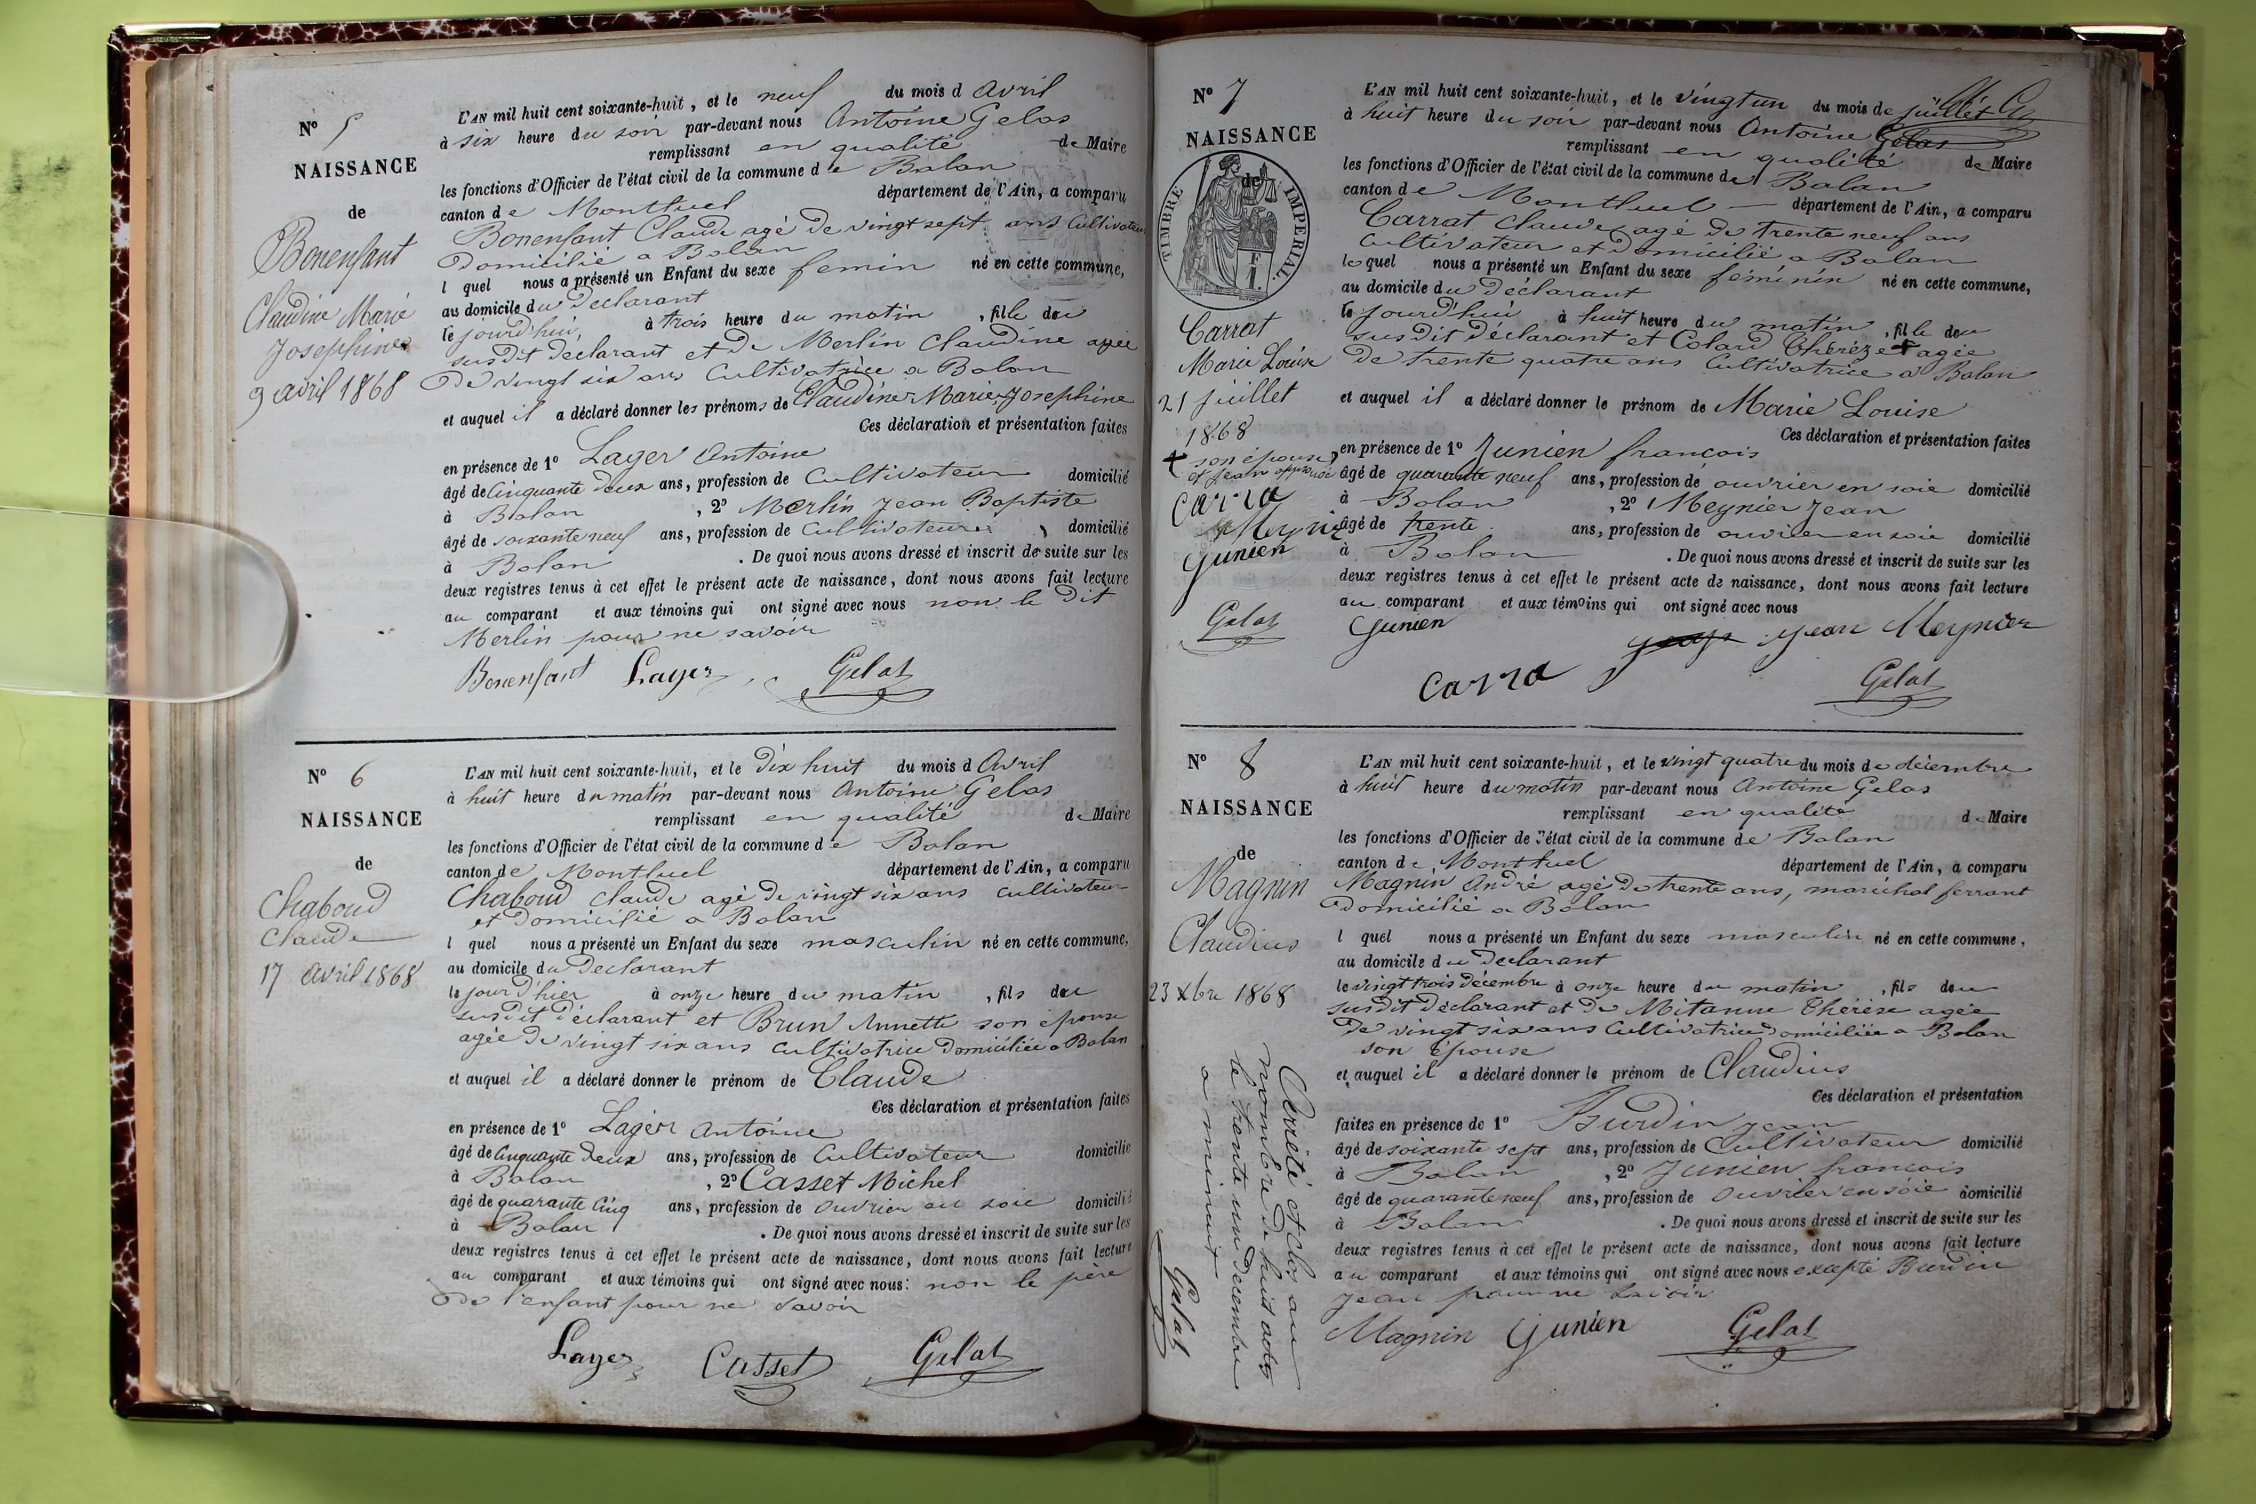 N° 5
NAISSANCE
de
Bonenfant
Claudine Marie
Josephine
9 avril 1868
L'AN mil huit cent soixante-huit, et le neuf du mois d Avril
à six heure du soir par-devant nous Antoine Gelas
remplissant en qualité de Maire
les fonctions d'Officier de l'état civil de la commune de Balan
canton de Montluel département de l'Ain, a comparu
Bonenfant Claude agé de vingt sept ans Cultivateur
Domicilié a Balan
l quel nous a présenté un Enfant du sexe femin né en cette commune,
au domicile du Déclarant
le jourd'hui à trois heure du matin, fille du
susdit déclarant et de Merlin Claudine agée
De vingt six ans Cultivatrice a Balan
et auquel il a déclaré donner les prénoms de Claudine Marie Josephine
Ces déclaration et présentation faites
en présence de 1° Layer Antoine
âgé de Cinquante deux ans, profession de Cultivateur domicilié
à Balan, 2° Merlin Jean Baptiste
âgé de soixante neuf ans, profession de Cultivateur domicilié
à Balan. De quoi nous avons dressé et inscrit de suite sur les
deux registres tenus à cet effet le présent acte de naissance, dont nous avons fait lecture
au comparant et aux témoins qui ont signé avec nous non le Dit
Merlin pour ne savoir
Bonenfant Layer Gelas
N° 6
NAISSANCE
de
Chaboud
Claude
17 Avril 1868
L'AN mil huit cent soixante-huit, et le Dix huit du mois d Avril
à huit heure du matin par-devant nous Antoine Gelas
remplissant en qualité de Maire
les fonctions d'Officier de l'état civil de la commune de Balan
canton de Montluel département de l'Ain, a comparu
Chaboud Claude agé de vingt six ans Cultivateur
et Domicilié a Balan
l quel nous a présenté un Enfant du sexe masculin né en cette commune,
au domicile du Declarant
le jour d'hier à onze heure du matin, fils du
susdit déclarant et Brun Annette son épouse
agée De vingt six ans Cultivatrice Domiciliée a Balan
et auquel il a déclaré donner le prénom de Claude
Ces déclaration et présentation faites
en présence de 1° Layer Antoine
âgé de Cinquante Deux ans, profession de Cultivateur domicilié
à Balan, 2° Casset Michel
âgé de quarante Cinq ans, profession de ouvrier en soie domicilié
à Balan. De quoi nous avons dressé et inscrit de suite sur les
deux registres tenus à cet effet le présent acte de naissance, dont nous avons fait lecture
au comparant et aux témoins qui ont signé avec nous: non le père
De l'enfant pour ne savoir
Layer Casset Gelas
N° 7
NAISSANCE
de
TIMBRE IMPERIAL
1 F.
Carrat
Marie Louise
21 juillet
1868
+ son épouse
et Jean approuvé
Carra
Meynier
Junien
Gelas
L'AN mil huit cent soixante-huit, et le vingt un du mois de juillet
à huit heure du soir par-devant nous Antoine Gelas
remplissant en qualité de Maire
les fonctions d'Officier de l'état civil de la commune de Balan
canton de Montluel département de l'Ain, a comparu
Carrat Claude agé de trente neuf ans
Cultivateur et Domicilié a Balan
le quel nous a présenté un Enfant du sexe féminin né en cette commune,
au domicile du Déclarant
le jourd'hui à huit heure du matin, fille du
susdit Déclarant et Colard Thérèze + agée
De trente quatre ans Cultivatrice a Balan
et auquel il a déclaré donner le prénom de Marie Louise
Ces déclaration et présentation faites
en présence de 1° Junien françois
âgé de quarante neuf ans, profession de ouvrier en soie domicilié
à Balan, 2° Meynier Jean
âgé de trente ans, profession de ouvrier en soie domicilié
à Balan. De quoi nous avons dressé et inscrit de suite sur les
deux registres tenus à cet effet le présent acte de naissance, dont nous avons fait lecture
au comparant et aux témoins qui ont signé avec nous
Junien Jean Meynier
Carra Gelas
N° 8
NAISSANCE
de
Magnin
Claudius
23 Xbre 1868
Arrêté et clos au
nombre de huit actes
le trente un Decembre
a minuit
Gelas
L'AN mil huit cent soixante-huit, et le vingt quatre du mois de décembre
à huit heure du matin par-devant nous Antoine Gelas
remplissant en qualité de Maire
les fonctions d'Officier de l'état civil de la commune de Balan
canton de Montluel département de l'Ain, a comparu
Magnin André agé De trente ans, maréchal ferrant
Domicilié a Balan
l quel nous a présenté un Enfant du sexe masculin né en cette commune,
au domicile du Declarant
le vingt trois décembre à onze heure du matin, fils du
susdit Déclarant et De Mitanne Thérèse agée
De vingt six ans Cultivatrice Domiciliée a Balan
son épouse
et auquel il a déclaré donner le prénom de Claudius
Ces déclaration et présentation
faites en présence de 1° Burdin Jean
âgé de soixante sept ans, profession de Cultivateur domicilié
à Balan, 2° Junien françois
âgé de quarante neuf ans, profession de ouvrier en soie domicilié
à Balan. De quoi nous avons dressé et inscrit de suite sur les
deux registres tenus à cet effet le présent acte de naissance, dont nous avons fait lecture
au comparant et aux témoins qui ont signé avec nous excepté Burdin
Jean pour ne savoir
Magnin Junien Gelas